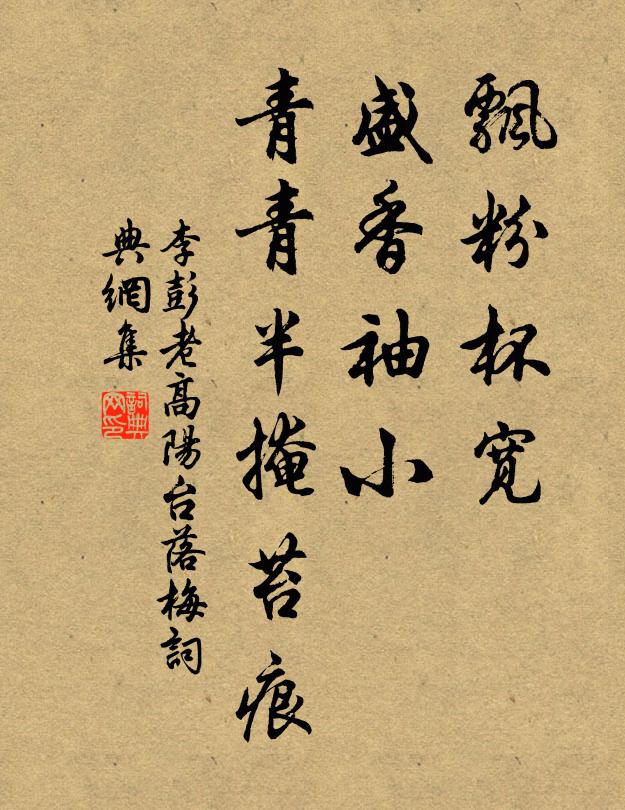 飄粉杯寬
盛香袖小
青青半掩苔痕
李彭老高陽台落梅詞
典網集
詞典
网印